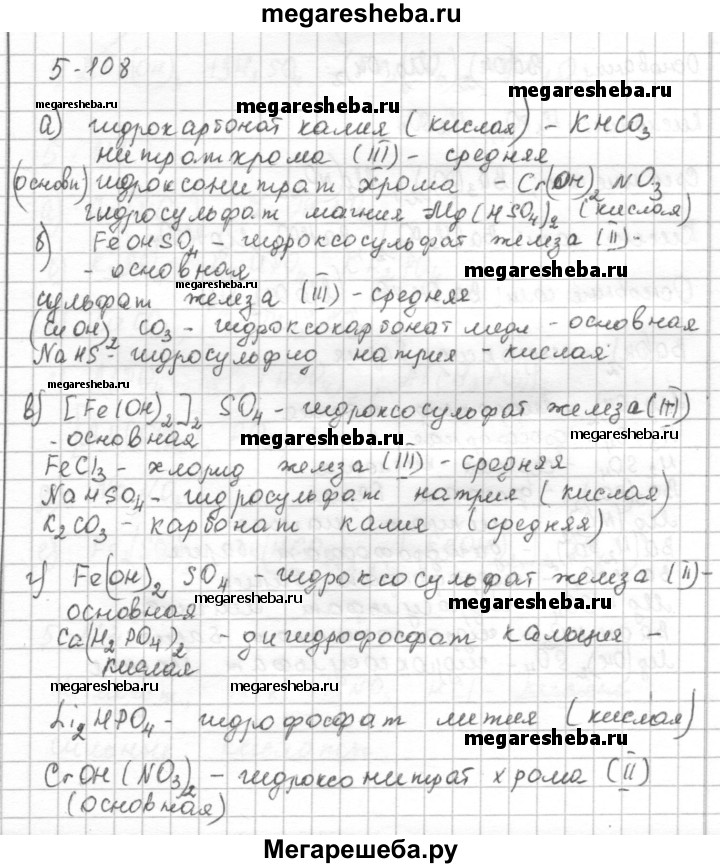 megaresheba.ru
5-108
megaresheba.ru
megaresheba.ru
megaresheba.ru
а) гидрокарбонат калия (кислая) - KHCO3
нитрат хрома (III) - средняя
(основн) гидроксонитрат хрома - Cr(OH)2NO3
гидросульфат магния Mg(HSO4)2 (кислая)
б) FeOHSO4 - гидроксосульфат железа (II) -
- основная
megaresheba.ru
megaresheba.ru
сульфат железа (III) - средняя
(CuOH)2 CO3 - гидроксокарбонат меди - основная
NaHS - гидросульфид натрия - кислая
megaresheba.ru
в) [Fe(OH)2]2 SO4 - гидроксосульфат железа (III)
- основная
megaresheba.ru
megaresheba.ru
FeCl3 - хлорид железа (III) - средняя
NaHSO4 - гидросульфат натрия (кислая)
K2CO3 - карбонат калия (средняя)
г) Fe(OH)2 SO4 - гидроксосульфат железа (II) -
основная
megaresheba.ru
megaresheba.ru
Ca(H2PO4)2 - дигидрофосфат кальция -
кислая
megaresheba.ru
megaresheba.ru
Li2HPO4 - гидрофосфат лития (кислая)
megaresheba.ru
CrOH(NO3)2 - гидроксонитрат хрома (II)
(основная)
megaresheba.ru
Мегарешеба.ру